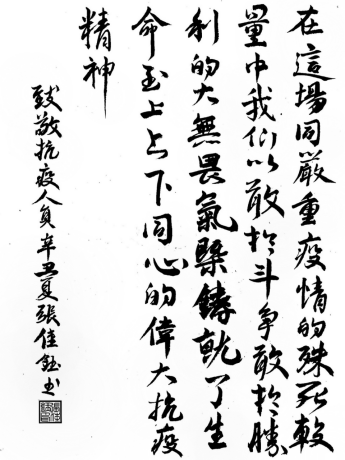 在這場同嚴重疫情的殊死較
量中我们以敢於斗争敢於勝
利的大無畏氣槩鑄就了生
命至上上下同心的偉大抗疫
精神
致敬抗疫人員辛丑夏張佳鈺书